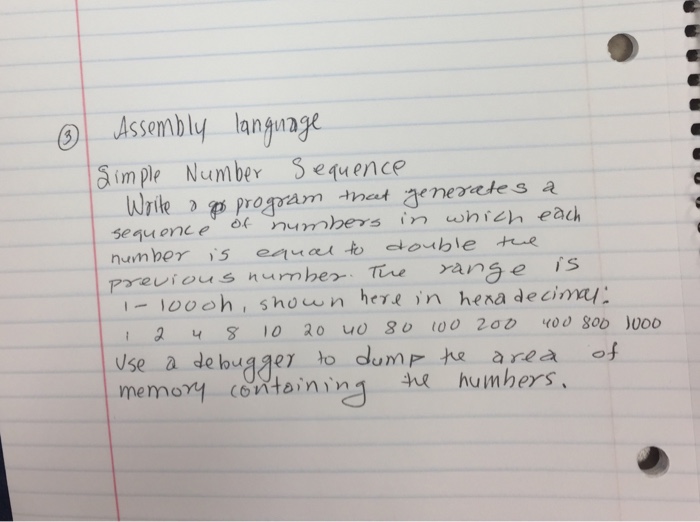 ③ Assembly language
Simple Number Sequence
Write a program that generates a
sequence of numbers in which each
number is equal to double the
previous number. The range is
1 - 1000h, shown here in hexadecimal:
1 2 4 8 10 20 40 80 100 200 400 800 1000
Use a debugger to dump the area of
memory containing the numbers.